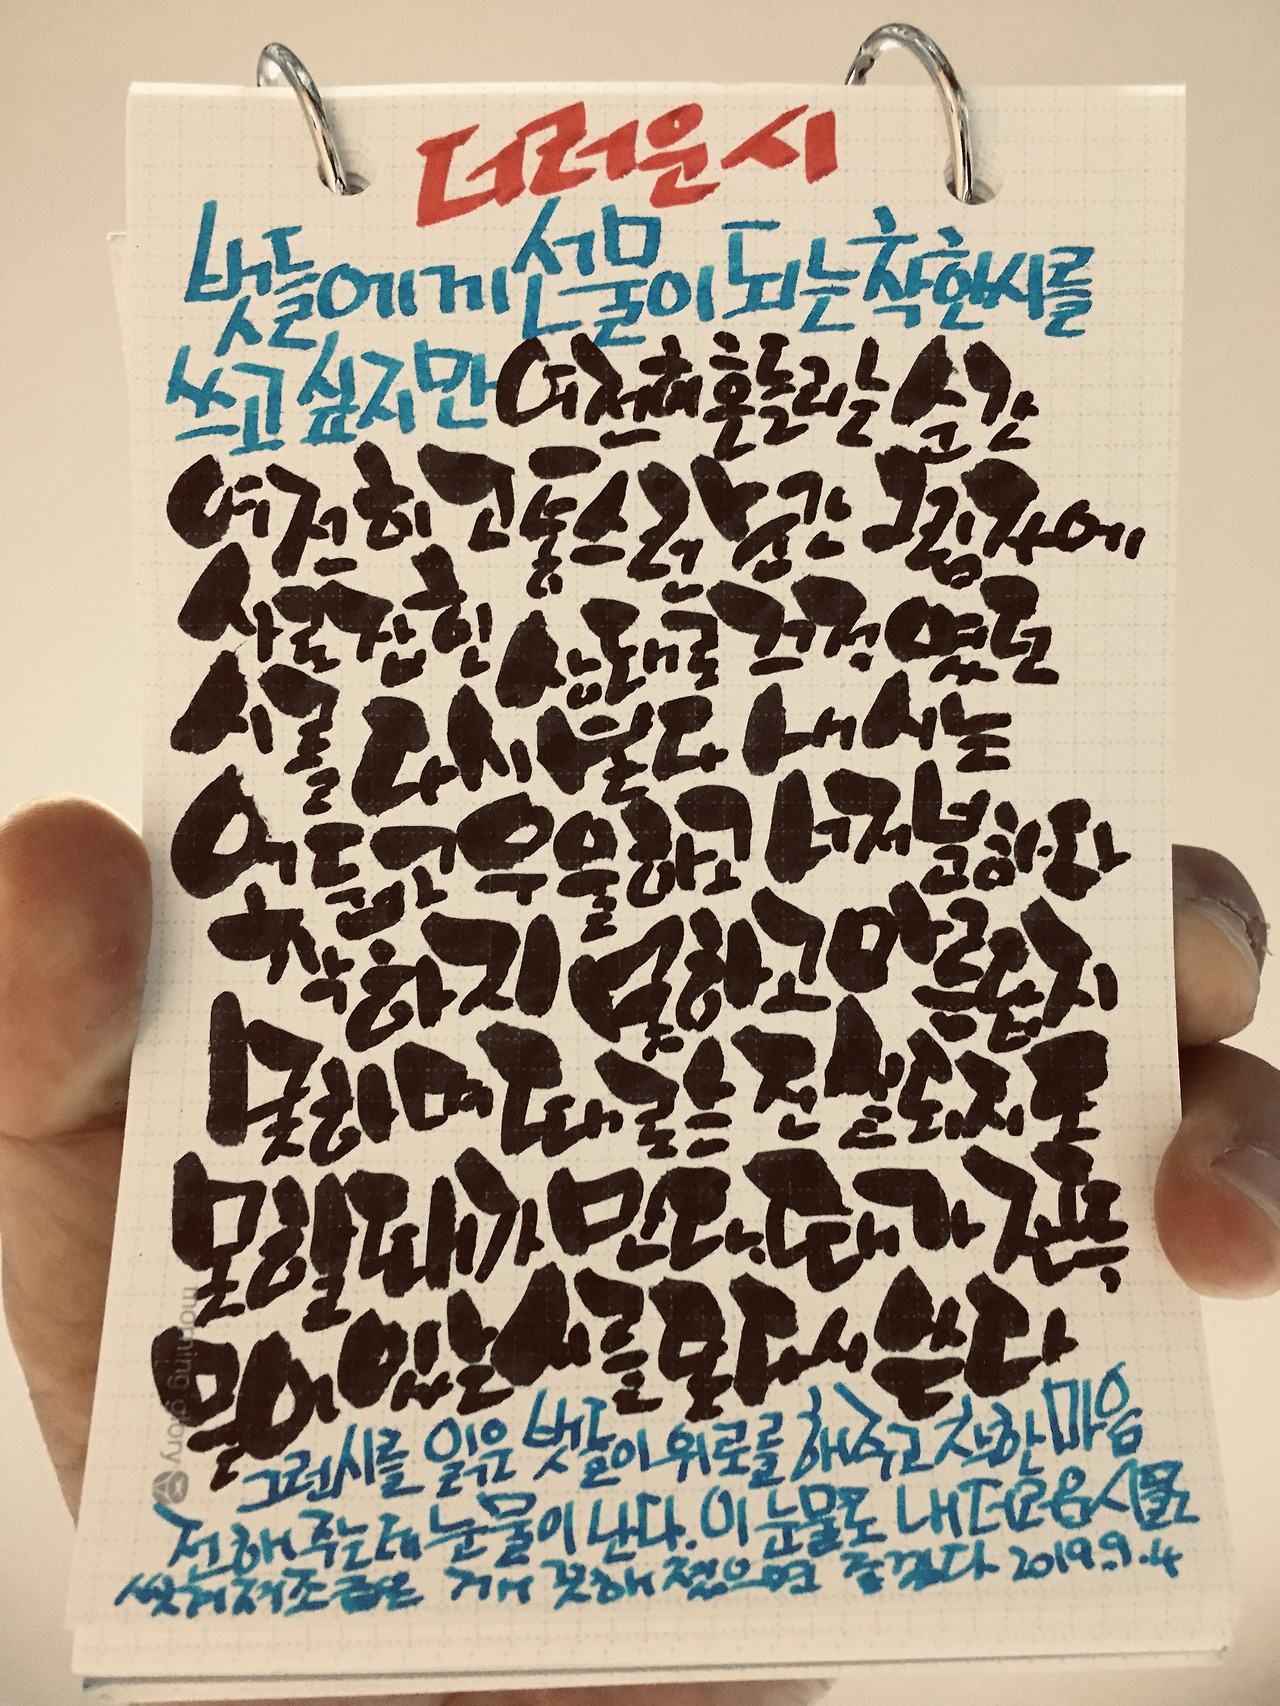 더러운 시
벗들에게 선물이 되는 착한 시를
쓰고 싶지만 여전히 흔들리는 순간
여전히 고통스런 순간 그림자에
사로잡힌 상태로 끄적였던
시를 다시 본다 내 시는
어둡고 우울하고 너저분하다
착하지 못하고 마르지
못하며 때로는 진실되지도
못할 때가 많다. 그때가
물어 있는 시를 또 다시 쓴다
그런 시를 읽은 벗들이 위로를 해주고 착한 마음
전해주는데 눈물이 난다. 이 눈물로 내 더러운 시를
씻겨져 조금은 깨끗해졌으면 좋겠다 2019.9.4
morning glory